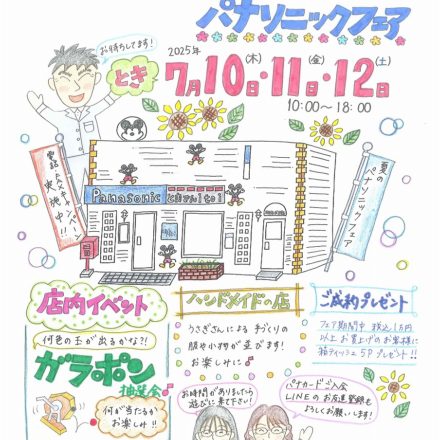 パナソニックフェア
お待ちしてます!
とき
2025年
7月10日(木)・11日(金)・12日(土)
10:00〜18:00
夏の
パナソニックフェア
Panasonic
店内イベント
何色の玉が出るかな?!
ガラポン
抽選会
何が当たるか
お楽しみ!!
ハンドメイドの店
うさぎさんによる 手づくりの
服や小物が並びます!
お楽しみに
お時間がありましたら
遊びに来て下さい!
ご成約プレゼント
フェア期間中 税込1万円
以上お買上げのお客様に
箱ティッシュ5Pプレゼント!!
パナカードご入会
LINEのお友達登録も
よろしくお願いします!